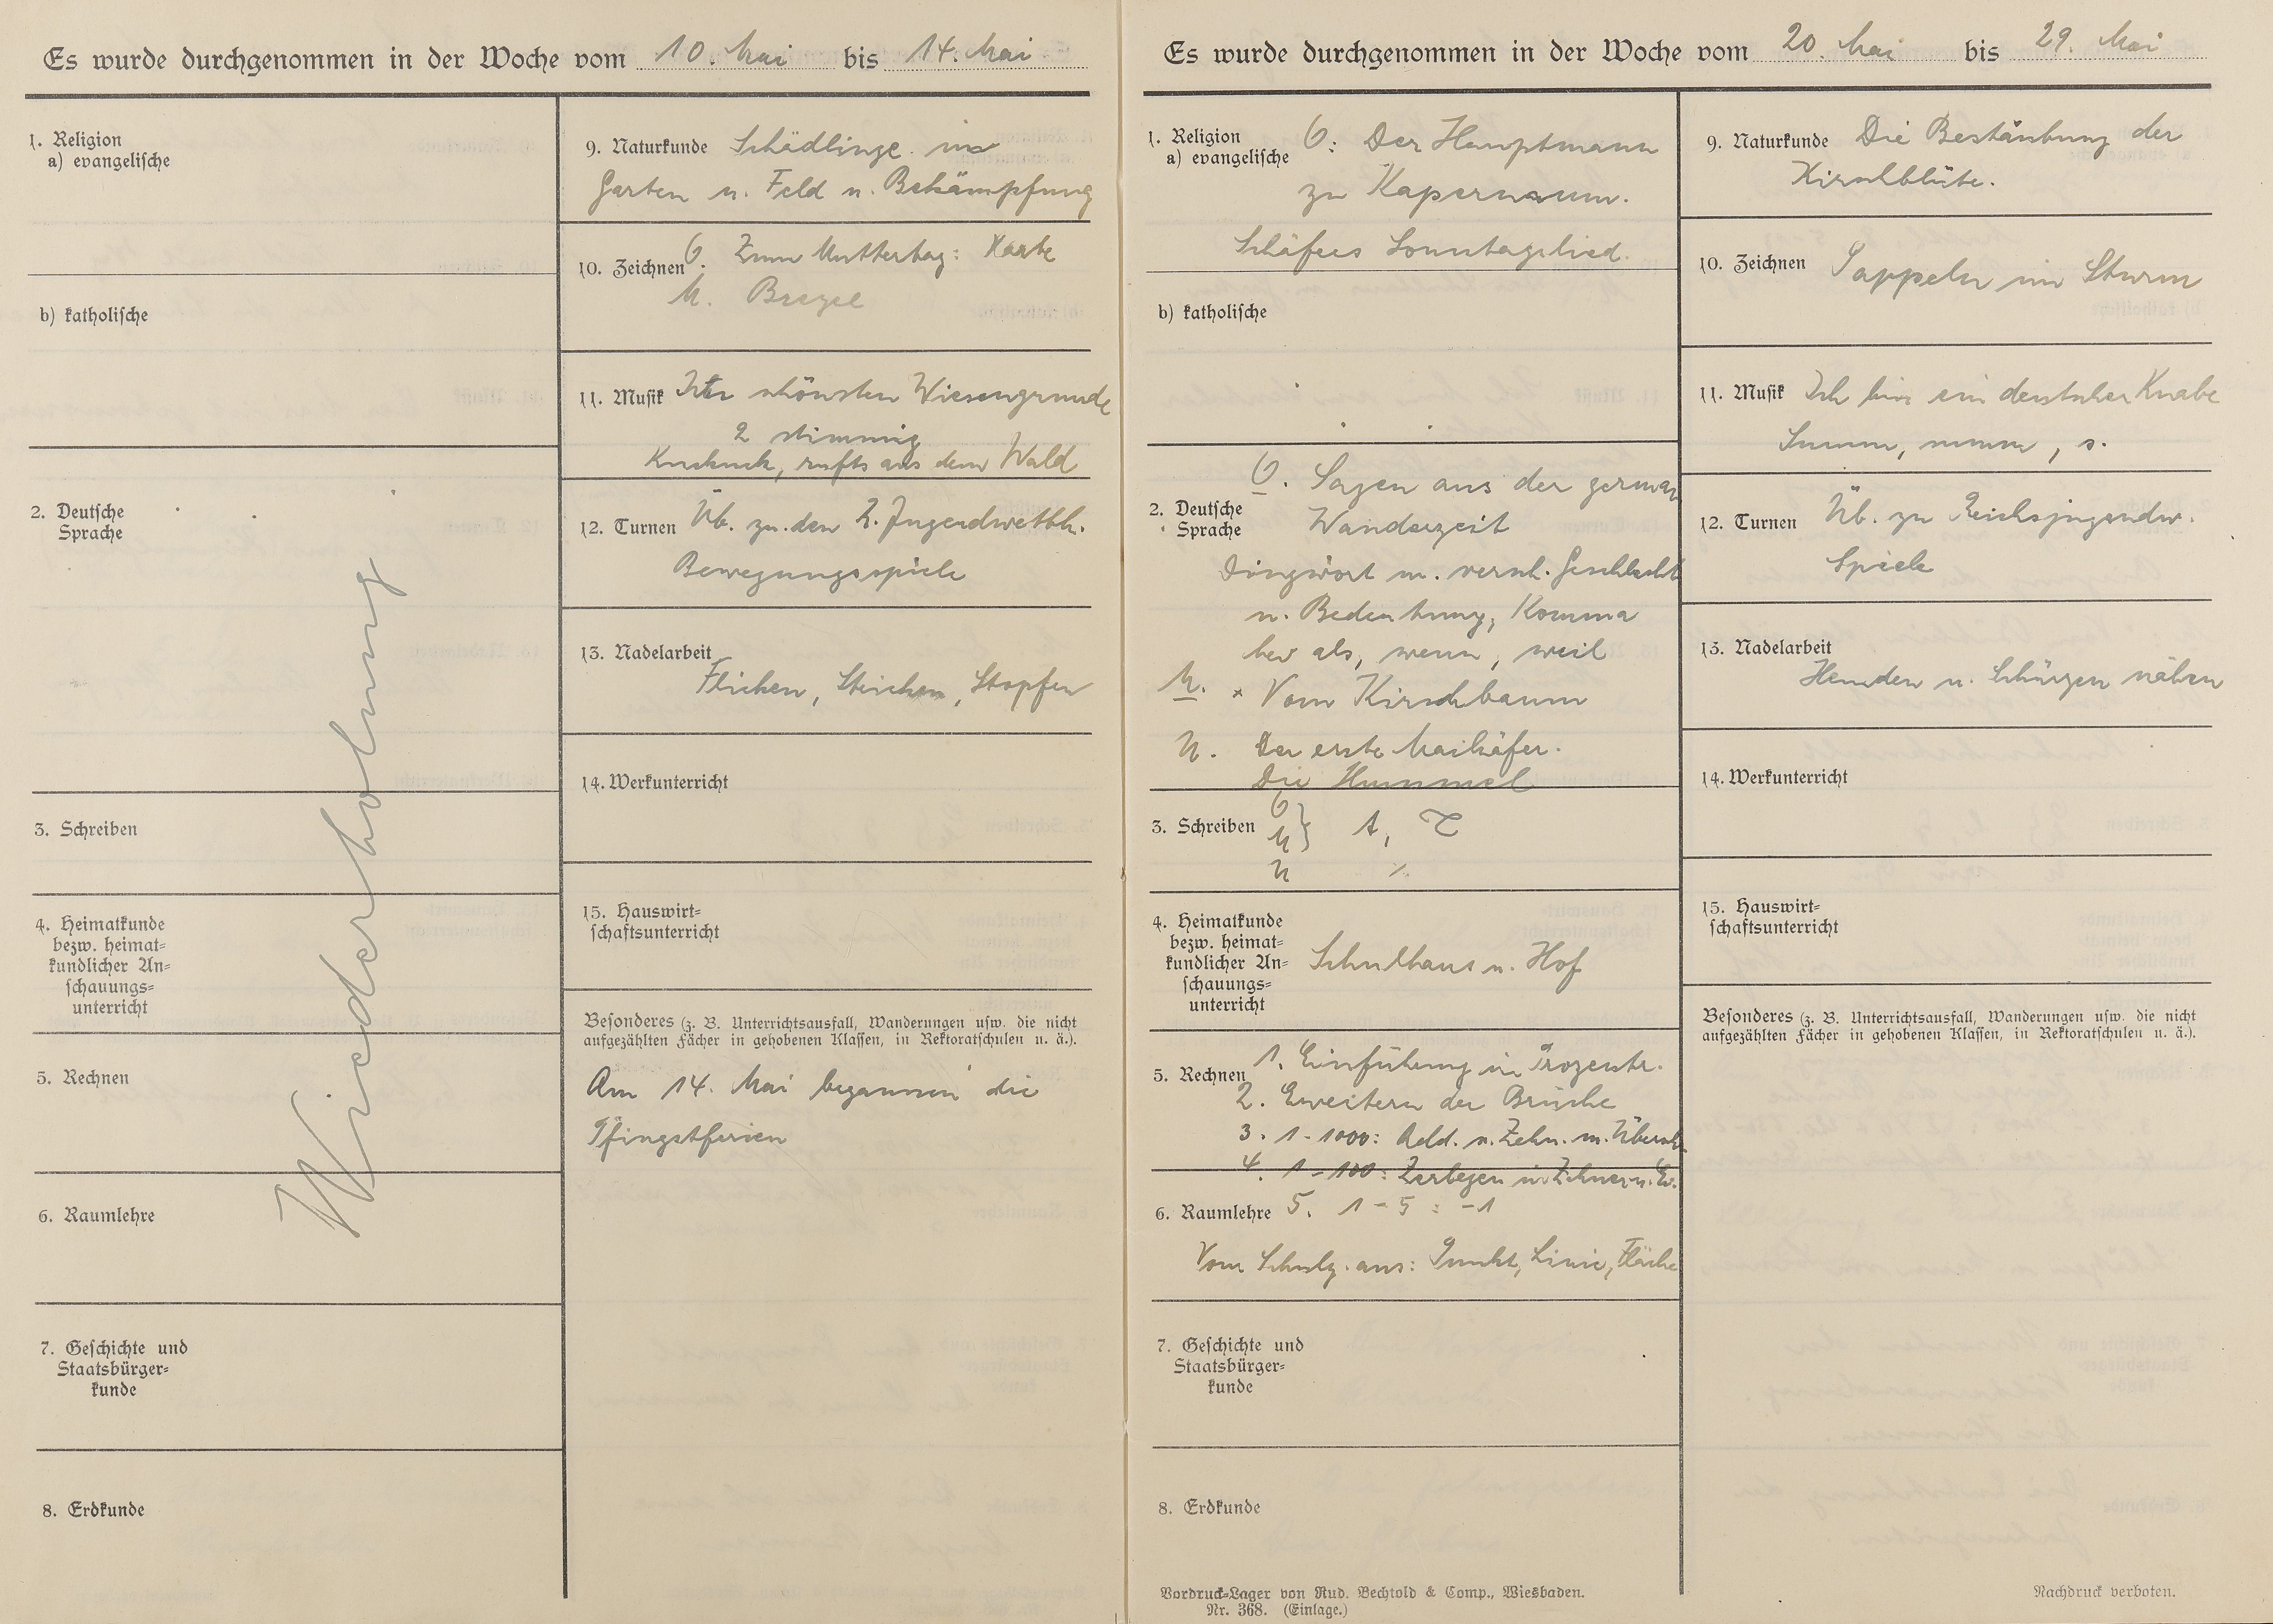 Es wurde durchgenommen in der Woche vom 10. Mai bis 14. Mai
1. Religion
a) evangelische
b) katholische
2. Deutsche
Sprache
3. Schreiben
4. Heimatkunde
bezw. heimat=
kundlicher An=
schauungs=
unterricht
5. Rechnen
6. Raumlehre
7. Geschichte und
Staatsbürger=
kunde
8. Erdkunde
Wiederholung
9. Naturkunde Schädlinge im
Garten u. Feld u. Bekämpfung
10. Zeichnen O. Zum Muttertag: Karte
M. Brezel
11. Musik Im schönsten Wiesengrunde
2 stimmig
Kuckuck, rufts aus dem Wald
12. Turnen Üb. zu den R. Jugendwettk.
Bewegungsspiele
13. Nadelarbeit
Flicken, Stricken, Stopfen
14. Werkunterricht
15. Hauswirt=
schaftsunterricht
Besonderes (z. B. Unterrichtsausfall, Wanderungen usw. die nicht
aufgezählten Fächer in gehobenen Klassen, in Rektoratschulen u. ä.).
Am 14. Mai begannen die
Pfingstferien
Es wurde durchgenommen in der Woche vom 20. Mai bis 29. Mai
1. Religion O: Der Hauptmann
a) evangelische zu Kapernaum.
Schäfers Sonntagslied.
b) katholische
2. Deutsche
Sprache
O. Sagen aus der german
Wanderzeit
Dingwort m. versch. Geschlecht
u. Bedeutung, Komma
bei als, wenn, weil
M. × Vom Kirschbaum
U. Der erste Maikäfer.
Die Hummel
3. Schreiben O
M } t, T
U
4. Heimatkunde
bezw. heimat=
kundlicher An=
schauungs=
unterricht
Schulhaus u. Hof
5. Rechnen 1. Einführung in Prozentr.
2. Erweitern der Brüche
3. 1-1000: Add. v. Zehn. m. Übersch.
4. 1-100: Zerlegen in Zehner u. E.
6. Raumlehre 5. 1-5 : -1
Vom Schulg. aus: Punkt, Linie, Fläche
7. Geschichte und
Staatsbürger=
kunde
8. Erdkunde
Vordruck=Lager von Rud. Bechtold & Comp., Wiesbaden.
Nr. 368. (Einlage.)
9. Naturkunde Die Bestäubung der
Kirschblüte.
10. Zeichnen Pappeln im Sturm
11. Musik Ich bin ein deutscher Knabe
Summ, summ, s.
12. Turnen Üb. zu Reichsjugendw.
Spiele
13. Nadelarbeit
Hemden u. Schürzen nähen
14. Werkunterricht
15. Hauswirt=
schaftsunterricht
Besonderes (z. B. Unterrichtsausfall, Wanderungen usw. die nicht
aufgezählten Fächer in gehobenen Klassen, in Rektoratschulen u. ä.).
Nachdruck verboten.